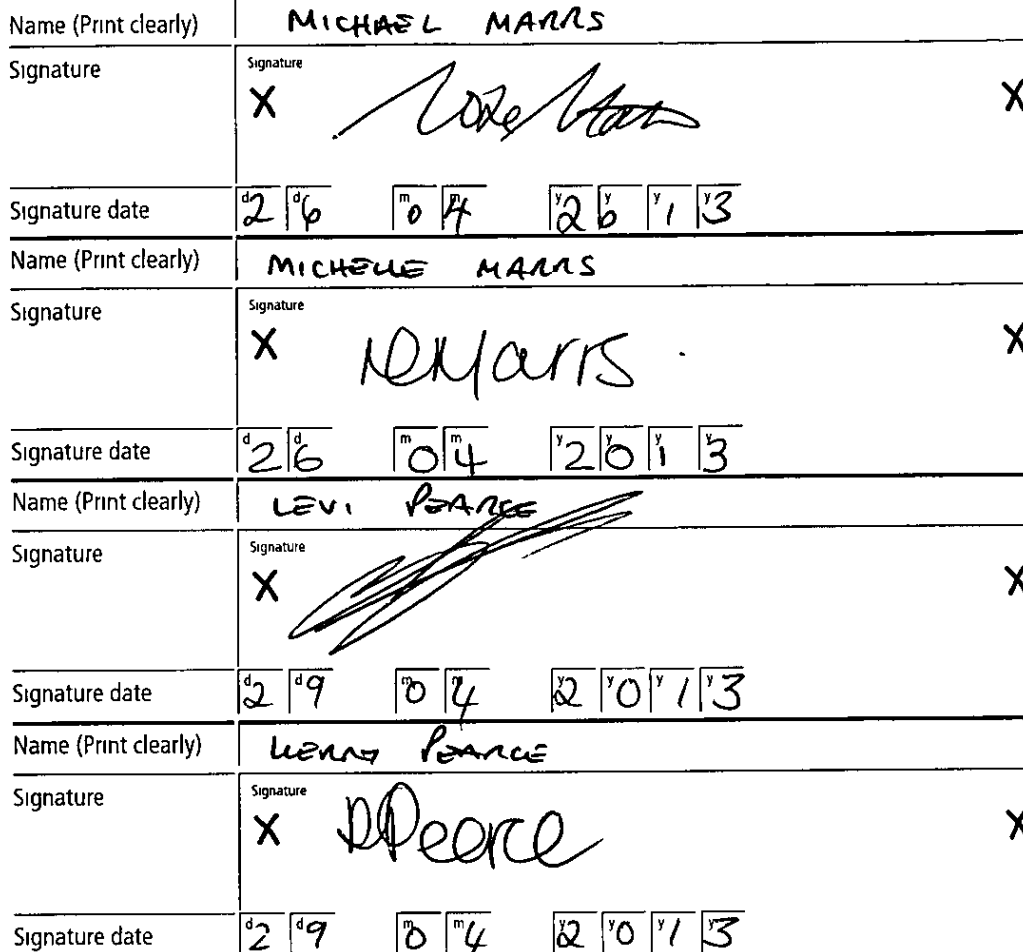 Name (Print clearly) MICHAEL MARRS
Signature Signature
X X
Signature date d2 d6 m0 m4 y2 y0 y1 y3
Name (Print clearly) MICHELLE MARRS
Signature Signature
X Marrs X
Signature date d2 d6 m0 m4 y2 y0 y1 y3
Name (Print clearly) LEVI PEARCE
Signature Signature
X X
Signature date d2 d9 m0 m4 y2 y0 y1 y3
Name (Print clearly) KERRY PEARCE
Signature Signature
X Pearce X
Signature date d2 d9 m0 m4 y2 y0 y1 y3